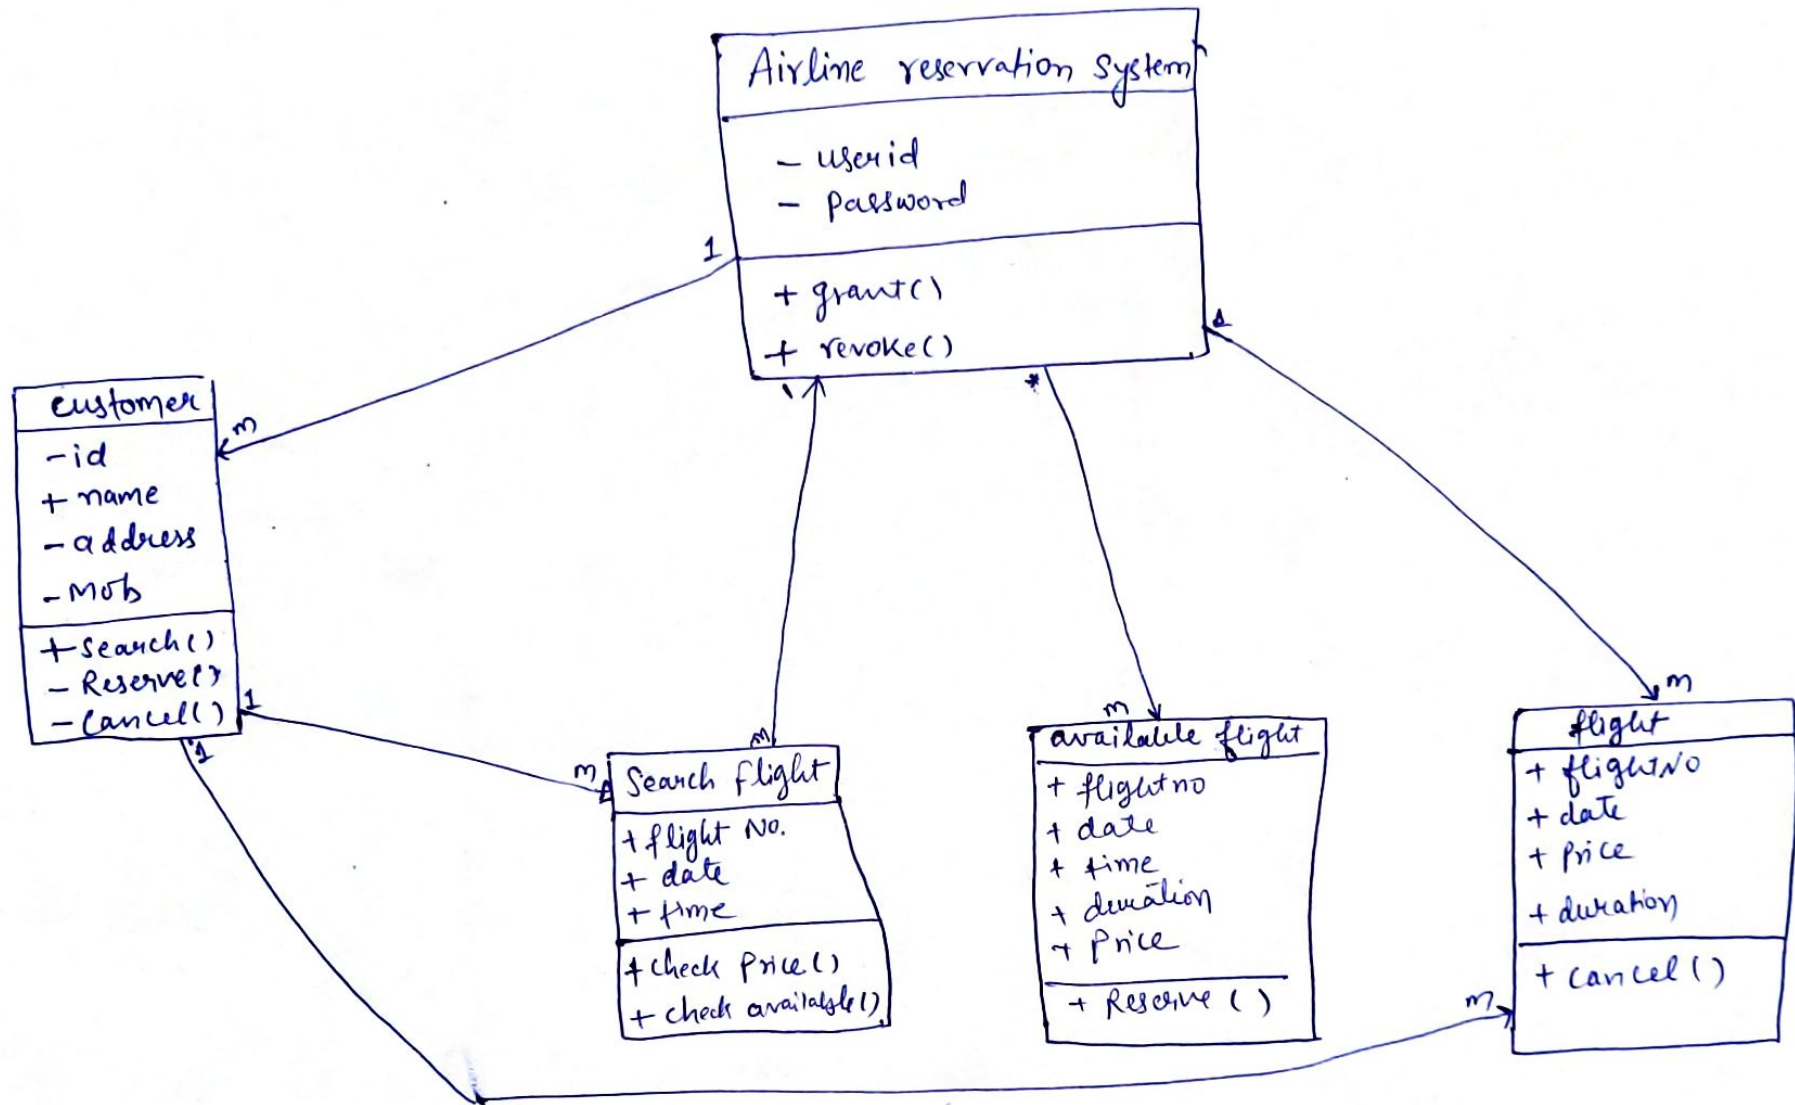 Airline reservation system
- userid
- password
+ grant()
+ revoke()
1
1
*
m
customer
- id
+ name
- address
- Mob
+ Search()
- Reserve()
- Cancel()
1
1
m
m
Search flight
+ flight No.
+ date
+ time
+ check Price()
+ check available()
m
available flight
+ flightno
+ date
+ time
+ duration
+ Price
+ Reserve ( )
m
flight
+ flightNo
+ date
+ Price
+ duration
+ Cancel ( )
m